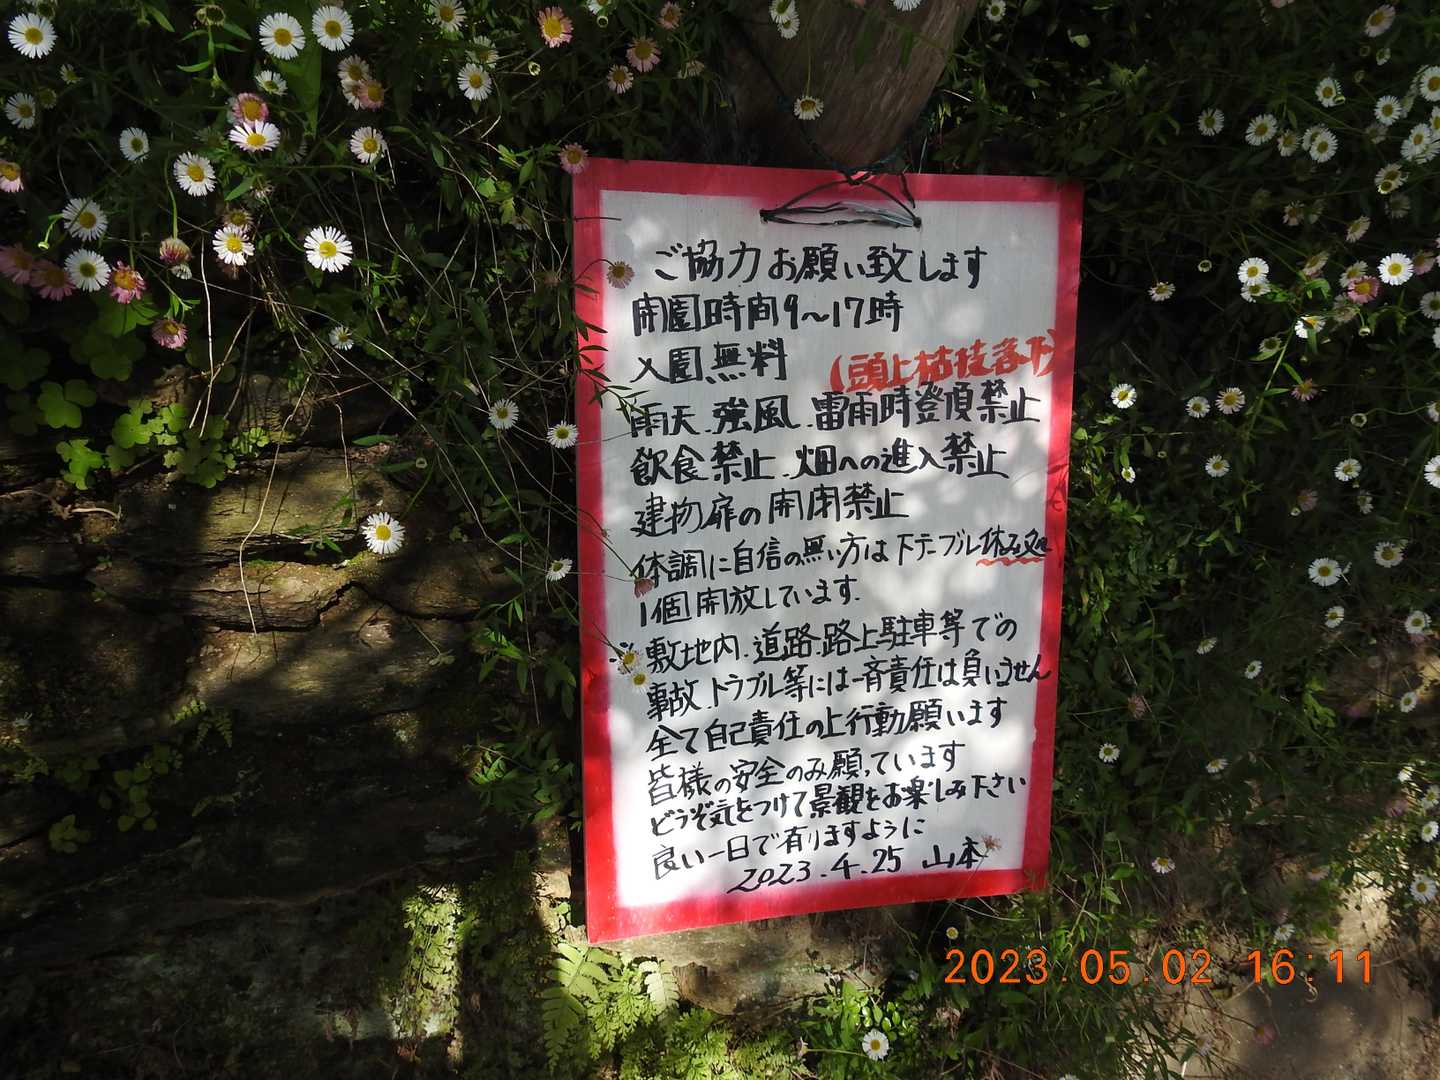 ご協力お願い致します
開園時間9〜17時
入園無料
(頭上枯枝落下)
雨天.強風.雷雨時登頂禁止
飲食禁止.畑への進入禁止
建物扉の開閉禁止
体調に自信の無い方は下テーブル休み処
1個開放しています.
※敷地内.道路.路上駐車等での
事故.トラブル等には一斉責任は負いません
全て自己責任の上行動願います
皆様の安全のみ願っています
どうぞ気をつけて景観をお楽しみ下さい
良い一日で有りますように
2023.4.25 山本
2023.05.02 16:11